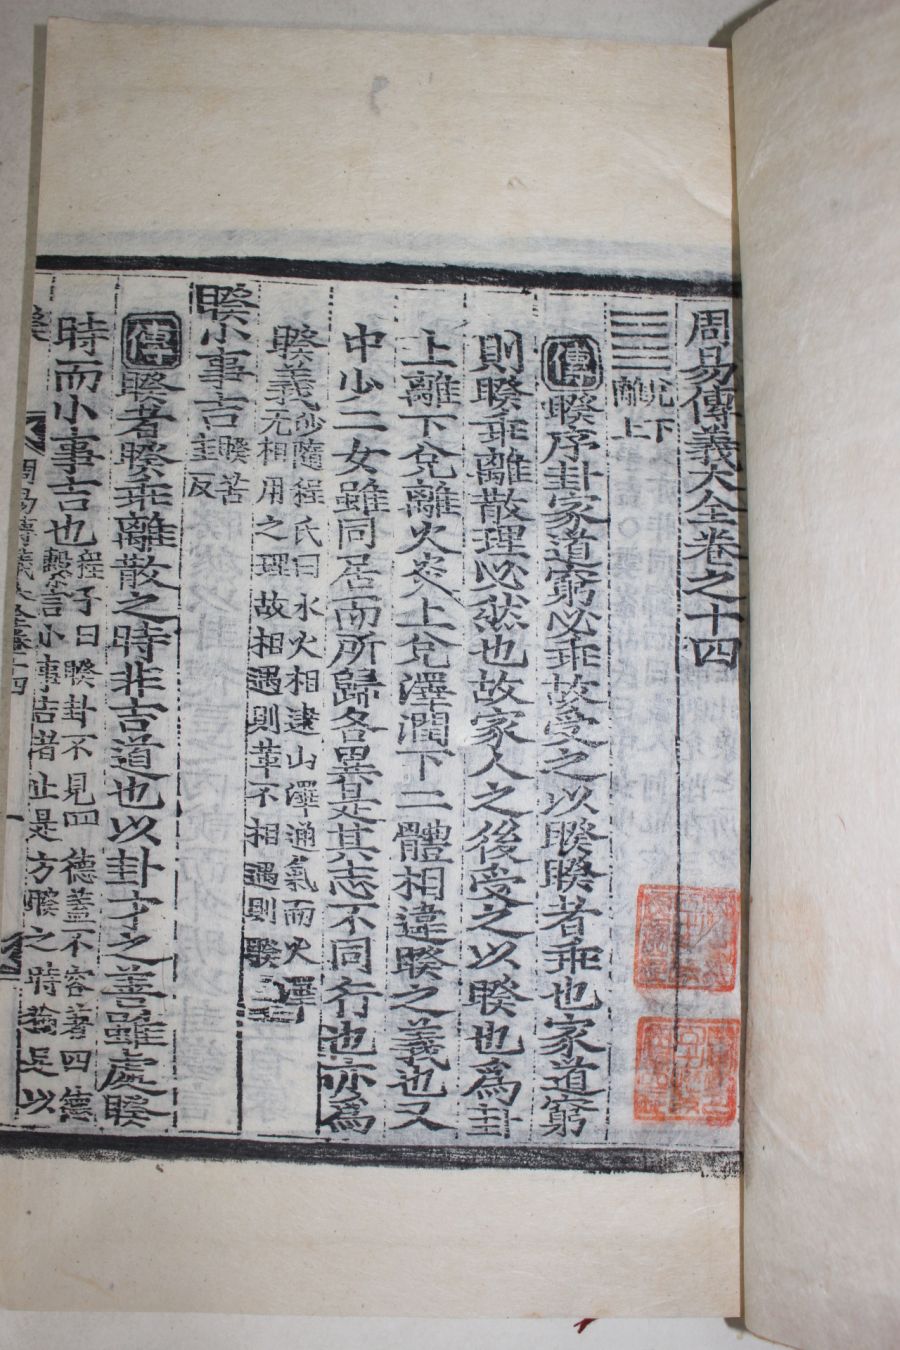 周易傳義大全卷之十四
兌下
離上
傳睽序卦家道窮必乖故受之以睽睽者乖也家道窮
則睽乖離散理必然也故家人之後受之以睽也爲卦
上離下兌離火炎上兌澤潤下二體相違睽之義也又
中少二女雖同居而所歸各異是其志不同行也亦爲
睽義
沙隨程氏曰水火相逮山澤通氣而火澤
无相用之理故相遇則革不相遇則睽
睽小事吉
睽苦
圭反
傳睽者睽乖離散之時非吉道也以卦才之善雖處睽
時而小事吉也
程子曰睽卦不見四德蓋不容著四德
繫言小事吉者止是方睽之時猶足以
周易傳義大全卷十四
一